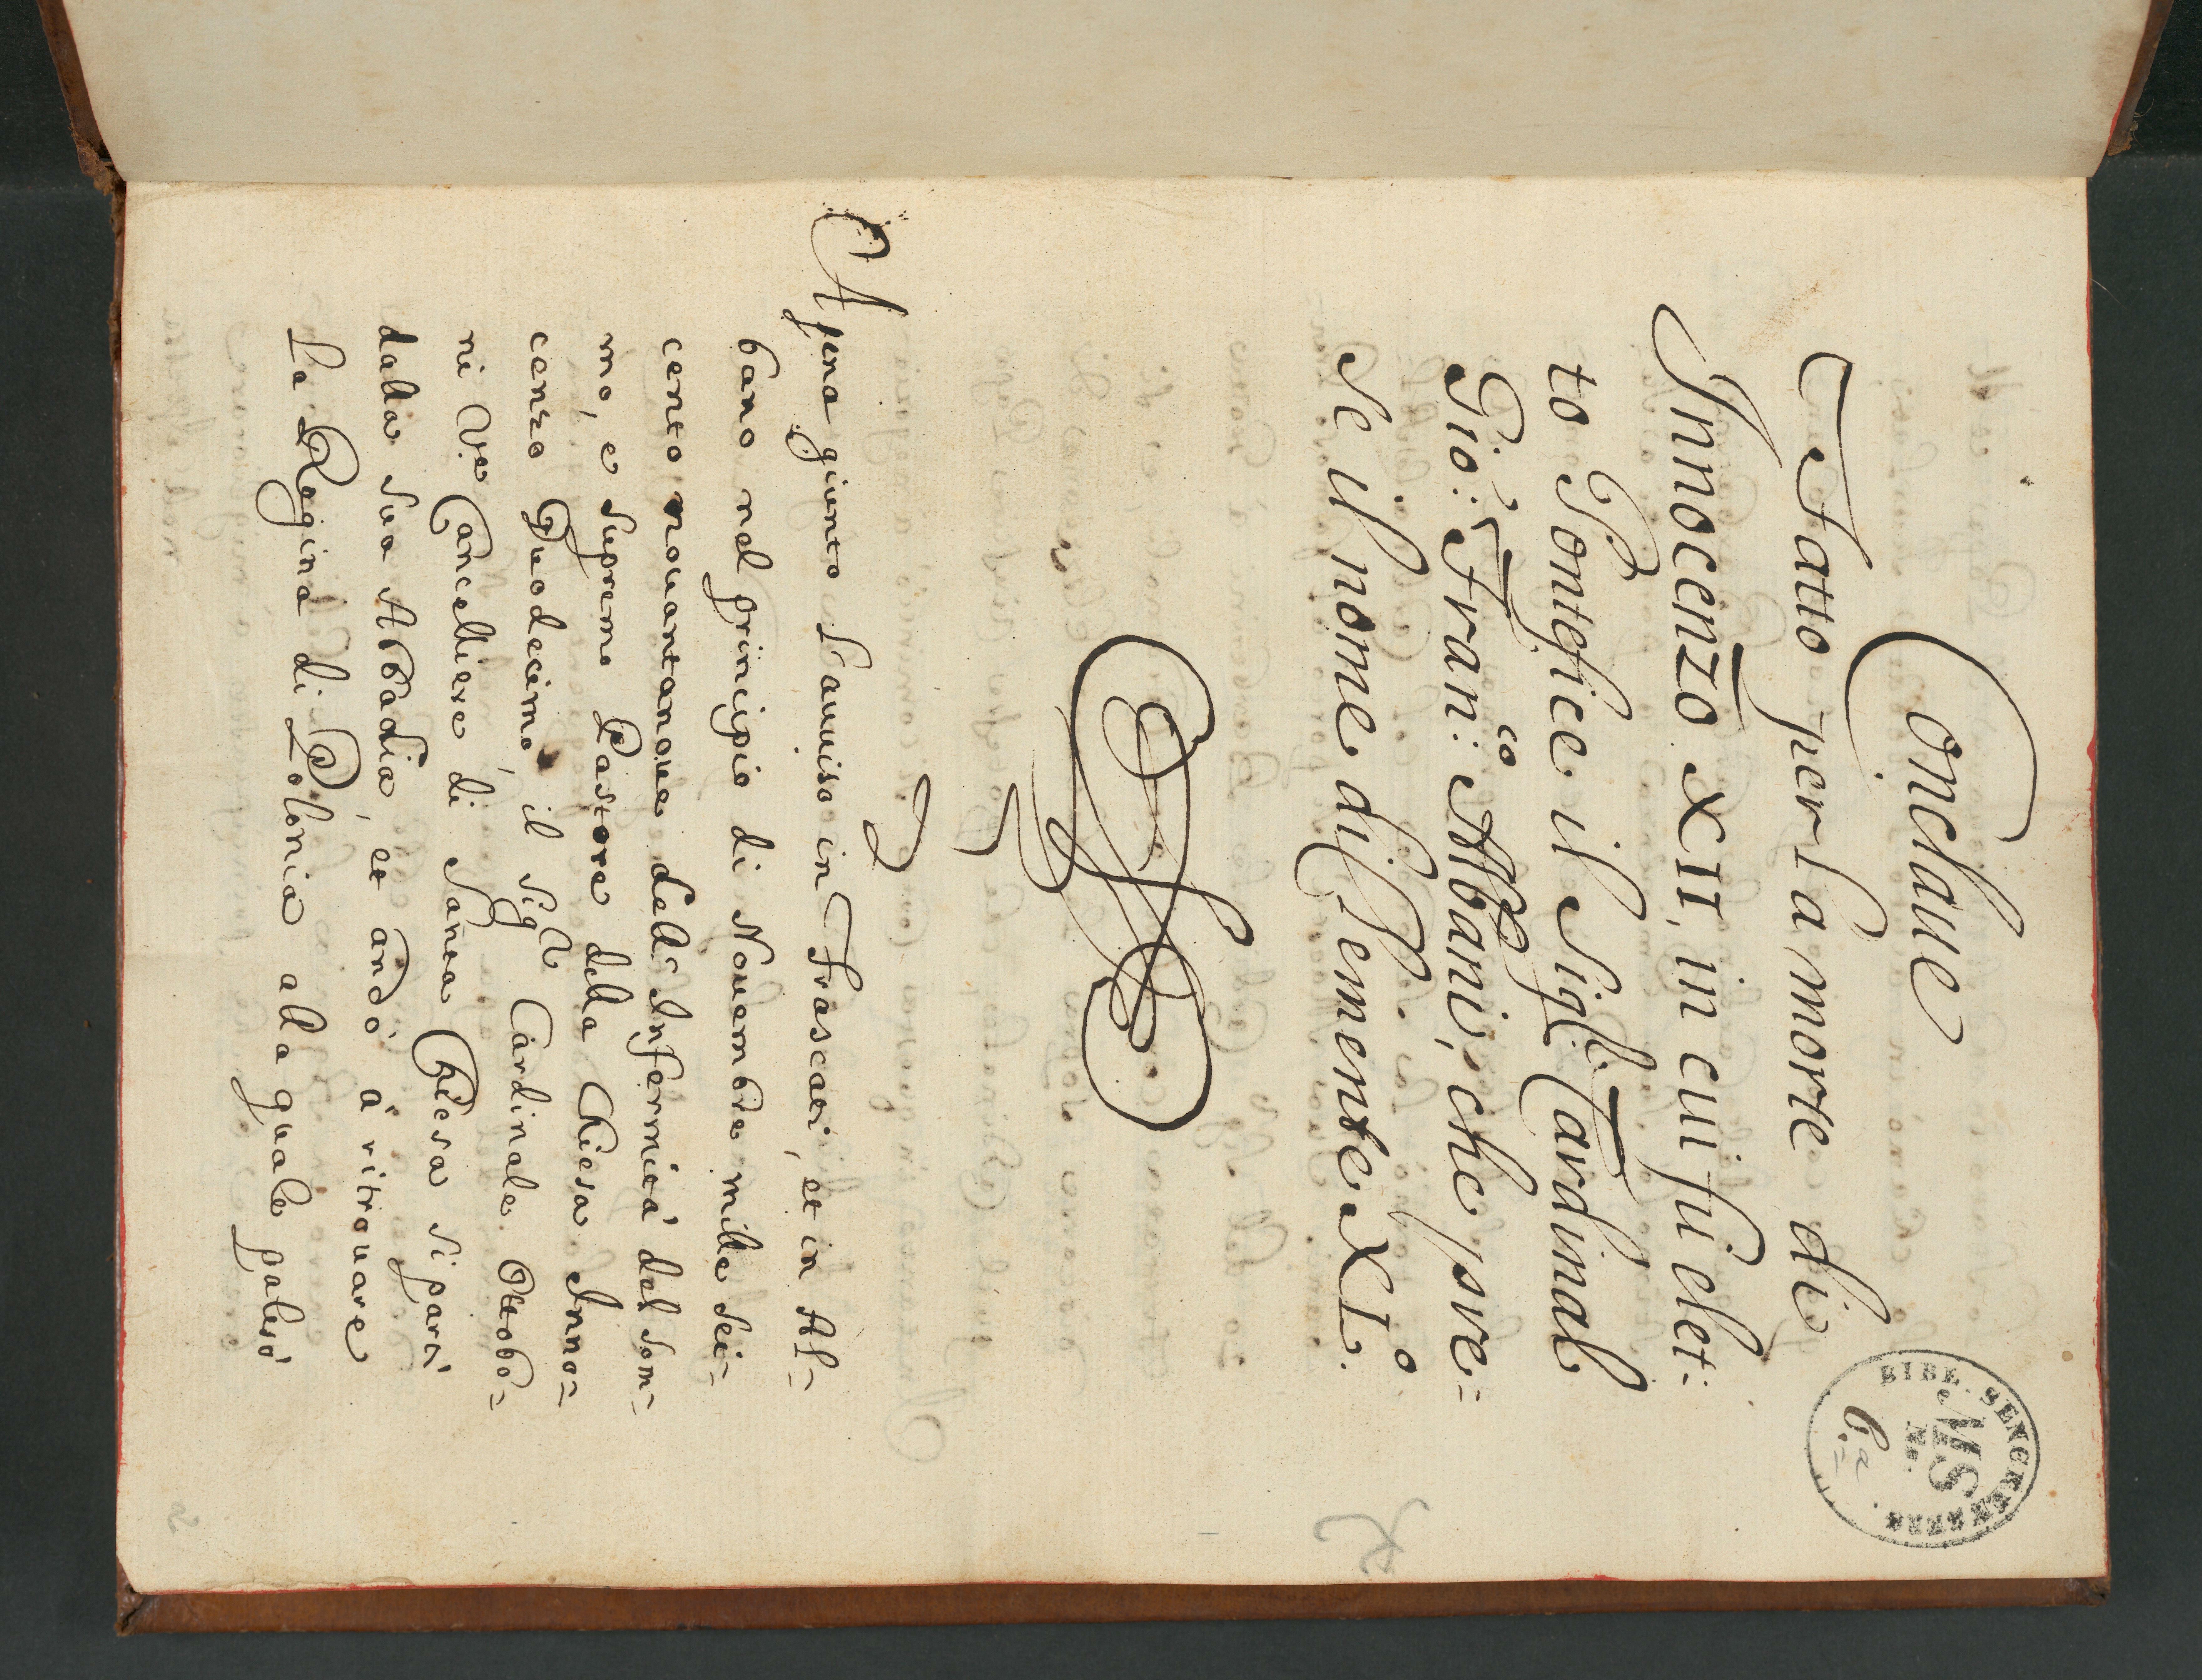 Conclaue
Fatto per la morte di
Innocenzo XII, in cui fù elet:
to Pontefice il Sig.r Cardinal
Gio: Fran:co Albani, che pre:
se il nome di Clemente XI.o
Apena giunto l'auuiso in Frascati, et in Al=
bano nel principio di Nouembre mille sei=
cento nouantanoue della Infermità del som=
mo, e supremo Pastore della Chiesa Inno=
cenzo Duodecimo, il Sig.r Cardinale Ottobo=
ni V.e Cancelliere, di Santa Chiesa si partì
dalla sua Abbadia, et andò à ritrouare
la Regina di Polonia alla quale palesò
BIBL. SENCKENBERG.
MS
No.
6.a